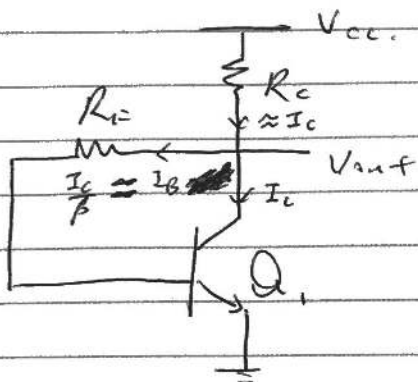 Vcc.
Rc
≈Ic
RF
Vout
Ic/β ≈ IB
Ic
Q1